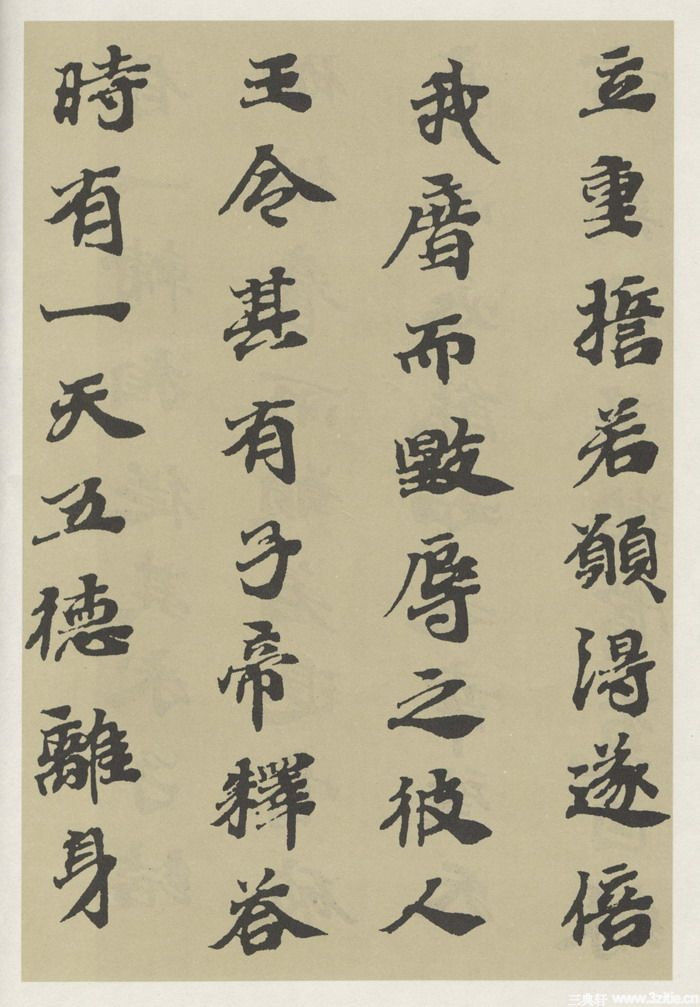 立重誓若願得遂倍
我庿而毀辱之彼人
王令其有子帝釋答
時有一天五德離身
三典轩 www.3zitie.cn